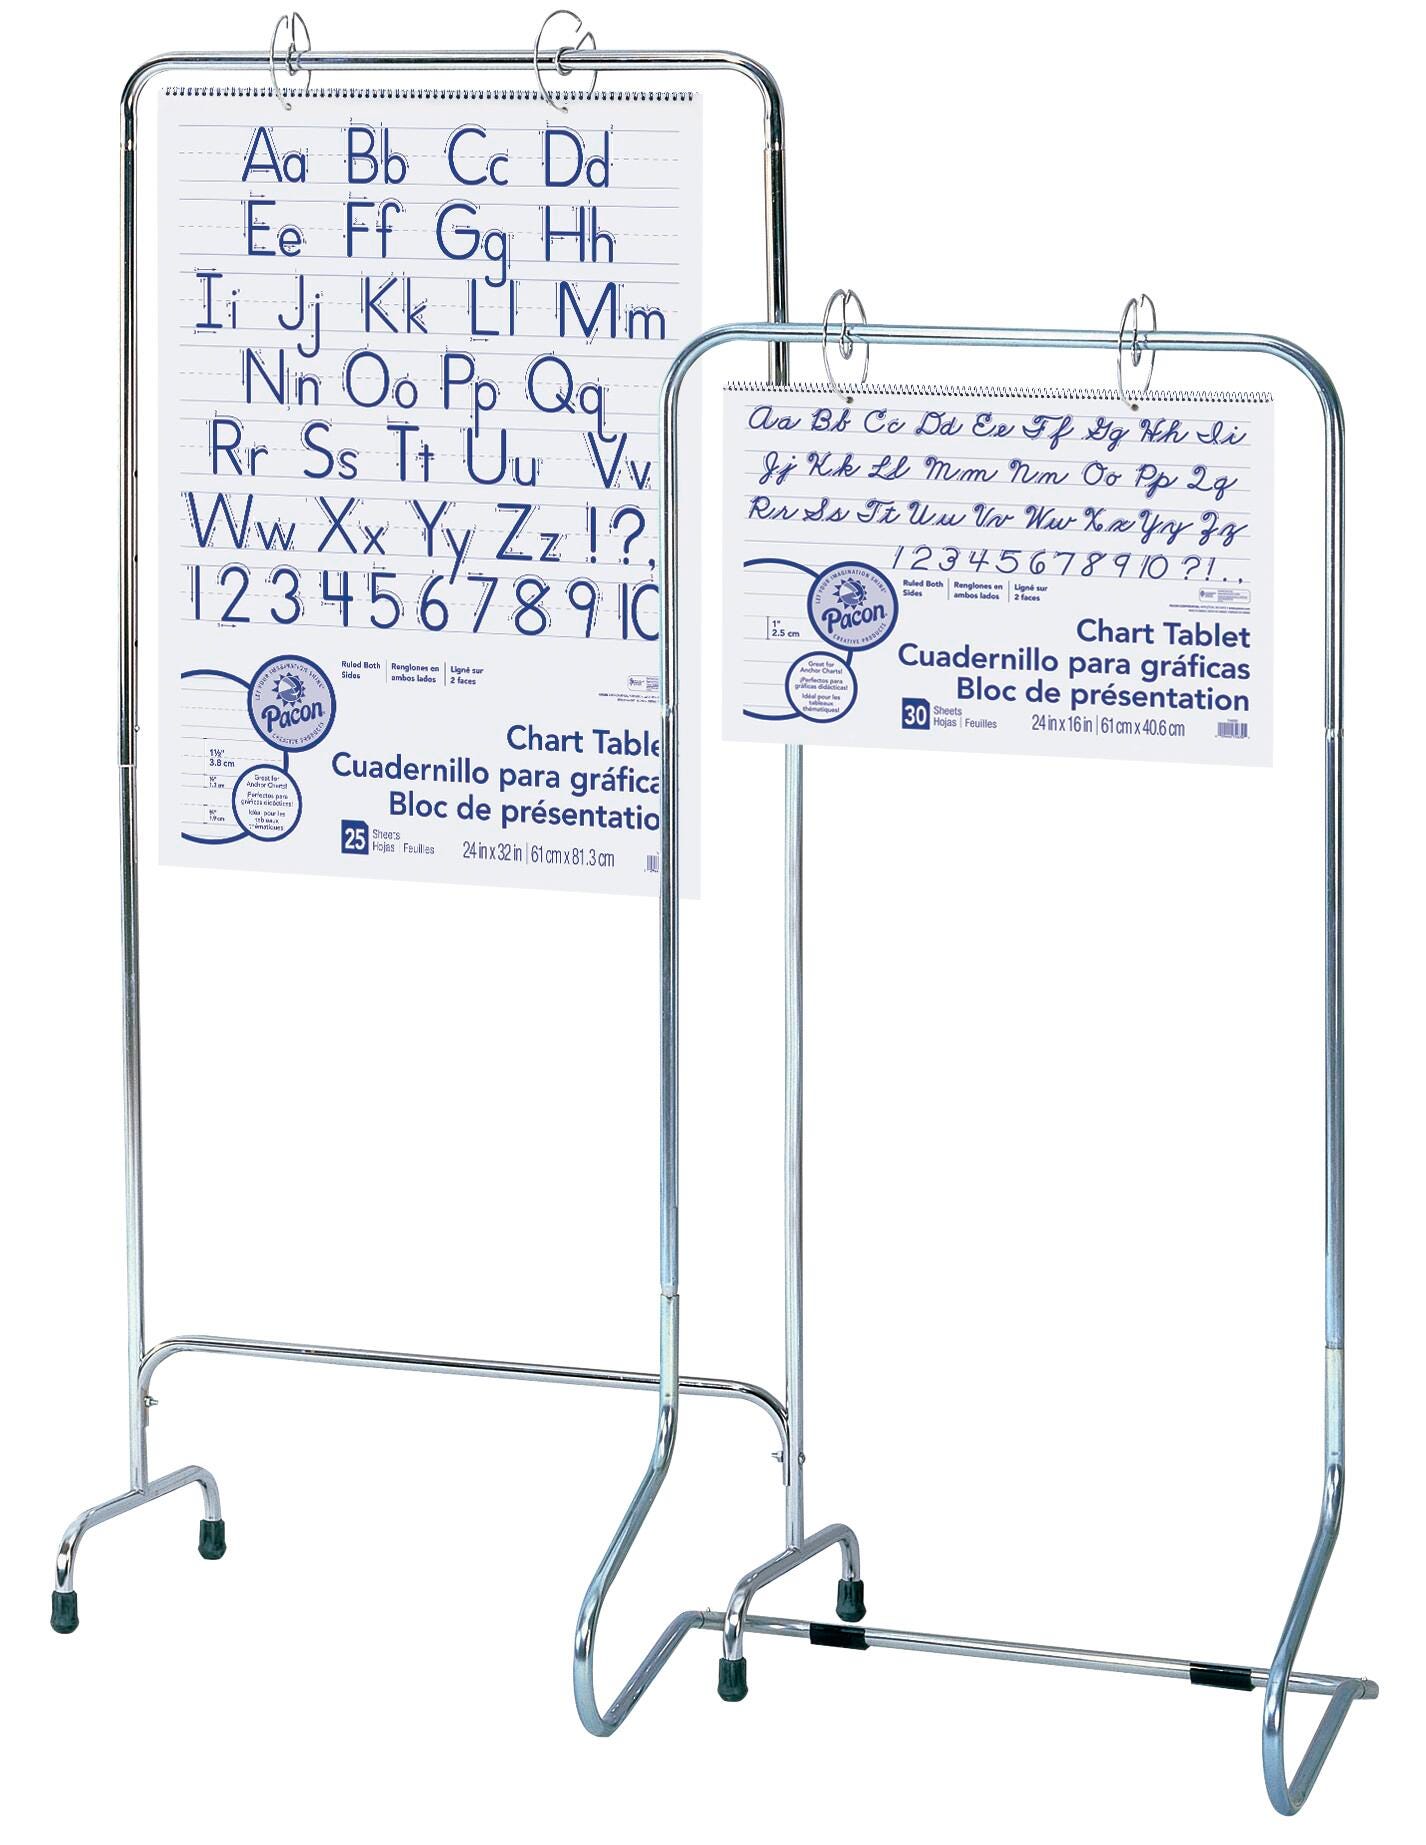 Aa Bb Cc Dd
Ee Ff Gg Hh
Ii Jj Kk Ll Mm
Nn Oo Pp Qq
Rr Ss Tt Uu Vv
Ww Xx Yy Zz !?,
1 2 3 4 5 6 7 8 9 10
LET YOUR IMAGINATION SHINE
Pacon
CREATIVE PRODUCTS
Ruled Both
Sides
Renglones en
ambos lados
Ligné sur
2 faces
1½"
3.8 cm
Great for
Anchor Charts!
¡Perfectos para
gráficas didácticas!
Idéal pour les
tableaux
thématiques!
Chart Table
Cuadernillo para gráfica
Bloc de présentatio
25 Sheets
Hojas | Feuilles
24 in x 32 in | 61 cm x 81.3 cm
Aa Bb Cc Dd Ee Ff Gg Hh Ii
Jj Kk Ll Mm Nn Oo Pp Qq
Rr Ss Tt Uu Vv Ww Xx Yy Zz
1 2 3 4 5 6 7 8 9 10 ? ! . ,
LET YOUR IMAGINATION SHINE
Pacon
CREATIVE PRODUCTS
Ruled Both
Sides
Renglones en
ambos lados
Ligné sur
2 faces
1"
2.5 cm
Great for
Anchor Charts!
¡Perfectos para
gráficas didácticas!
Idéal pour les
tableaux
thématiques!
Chart Tablet
Cuadernillo para gráficas
Bloc de présentation
30 Sheets
Hojas | Feuilles
24 in x 16 in | 61 cm x 40.6 cm